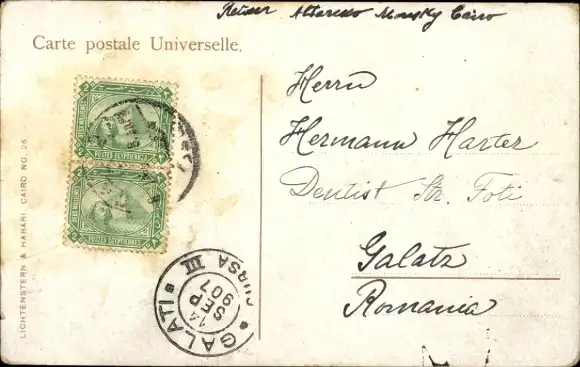 Retour Attaredo Mousky Cairo
Carte postale Universelle.
Herrn
Hermann Harter
Dentist Str. Foti
Galatz
Romania
POSTES EGYPTIENNES
POSTES EGYPTIENNES
GALATI
14
SEP
907
CURSA III
LICHTENSTERN & HARARI, CAIRO NO. 26